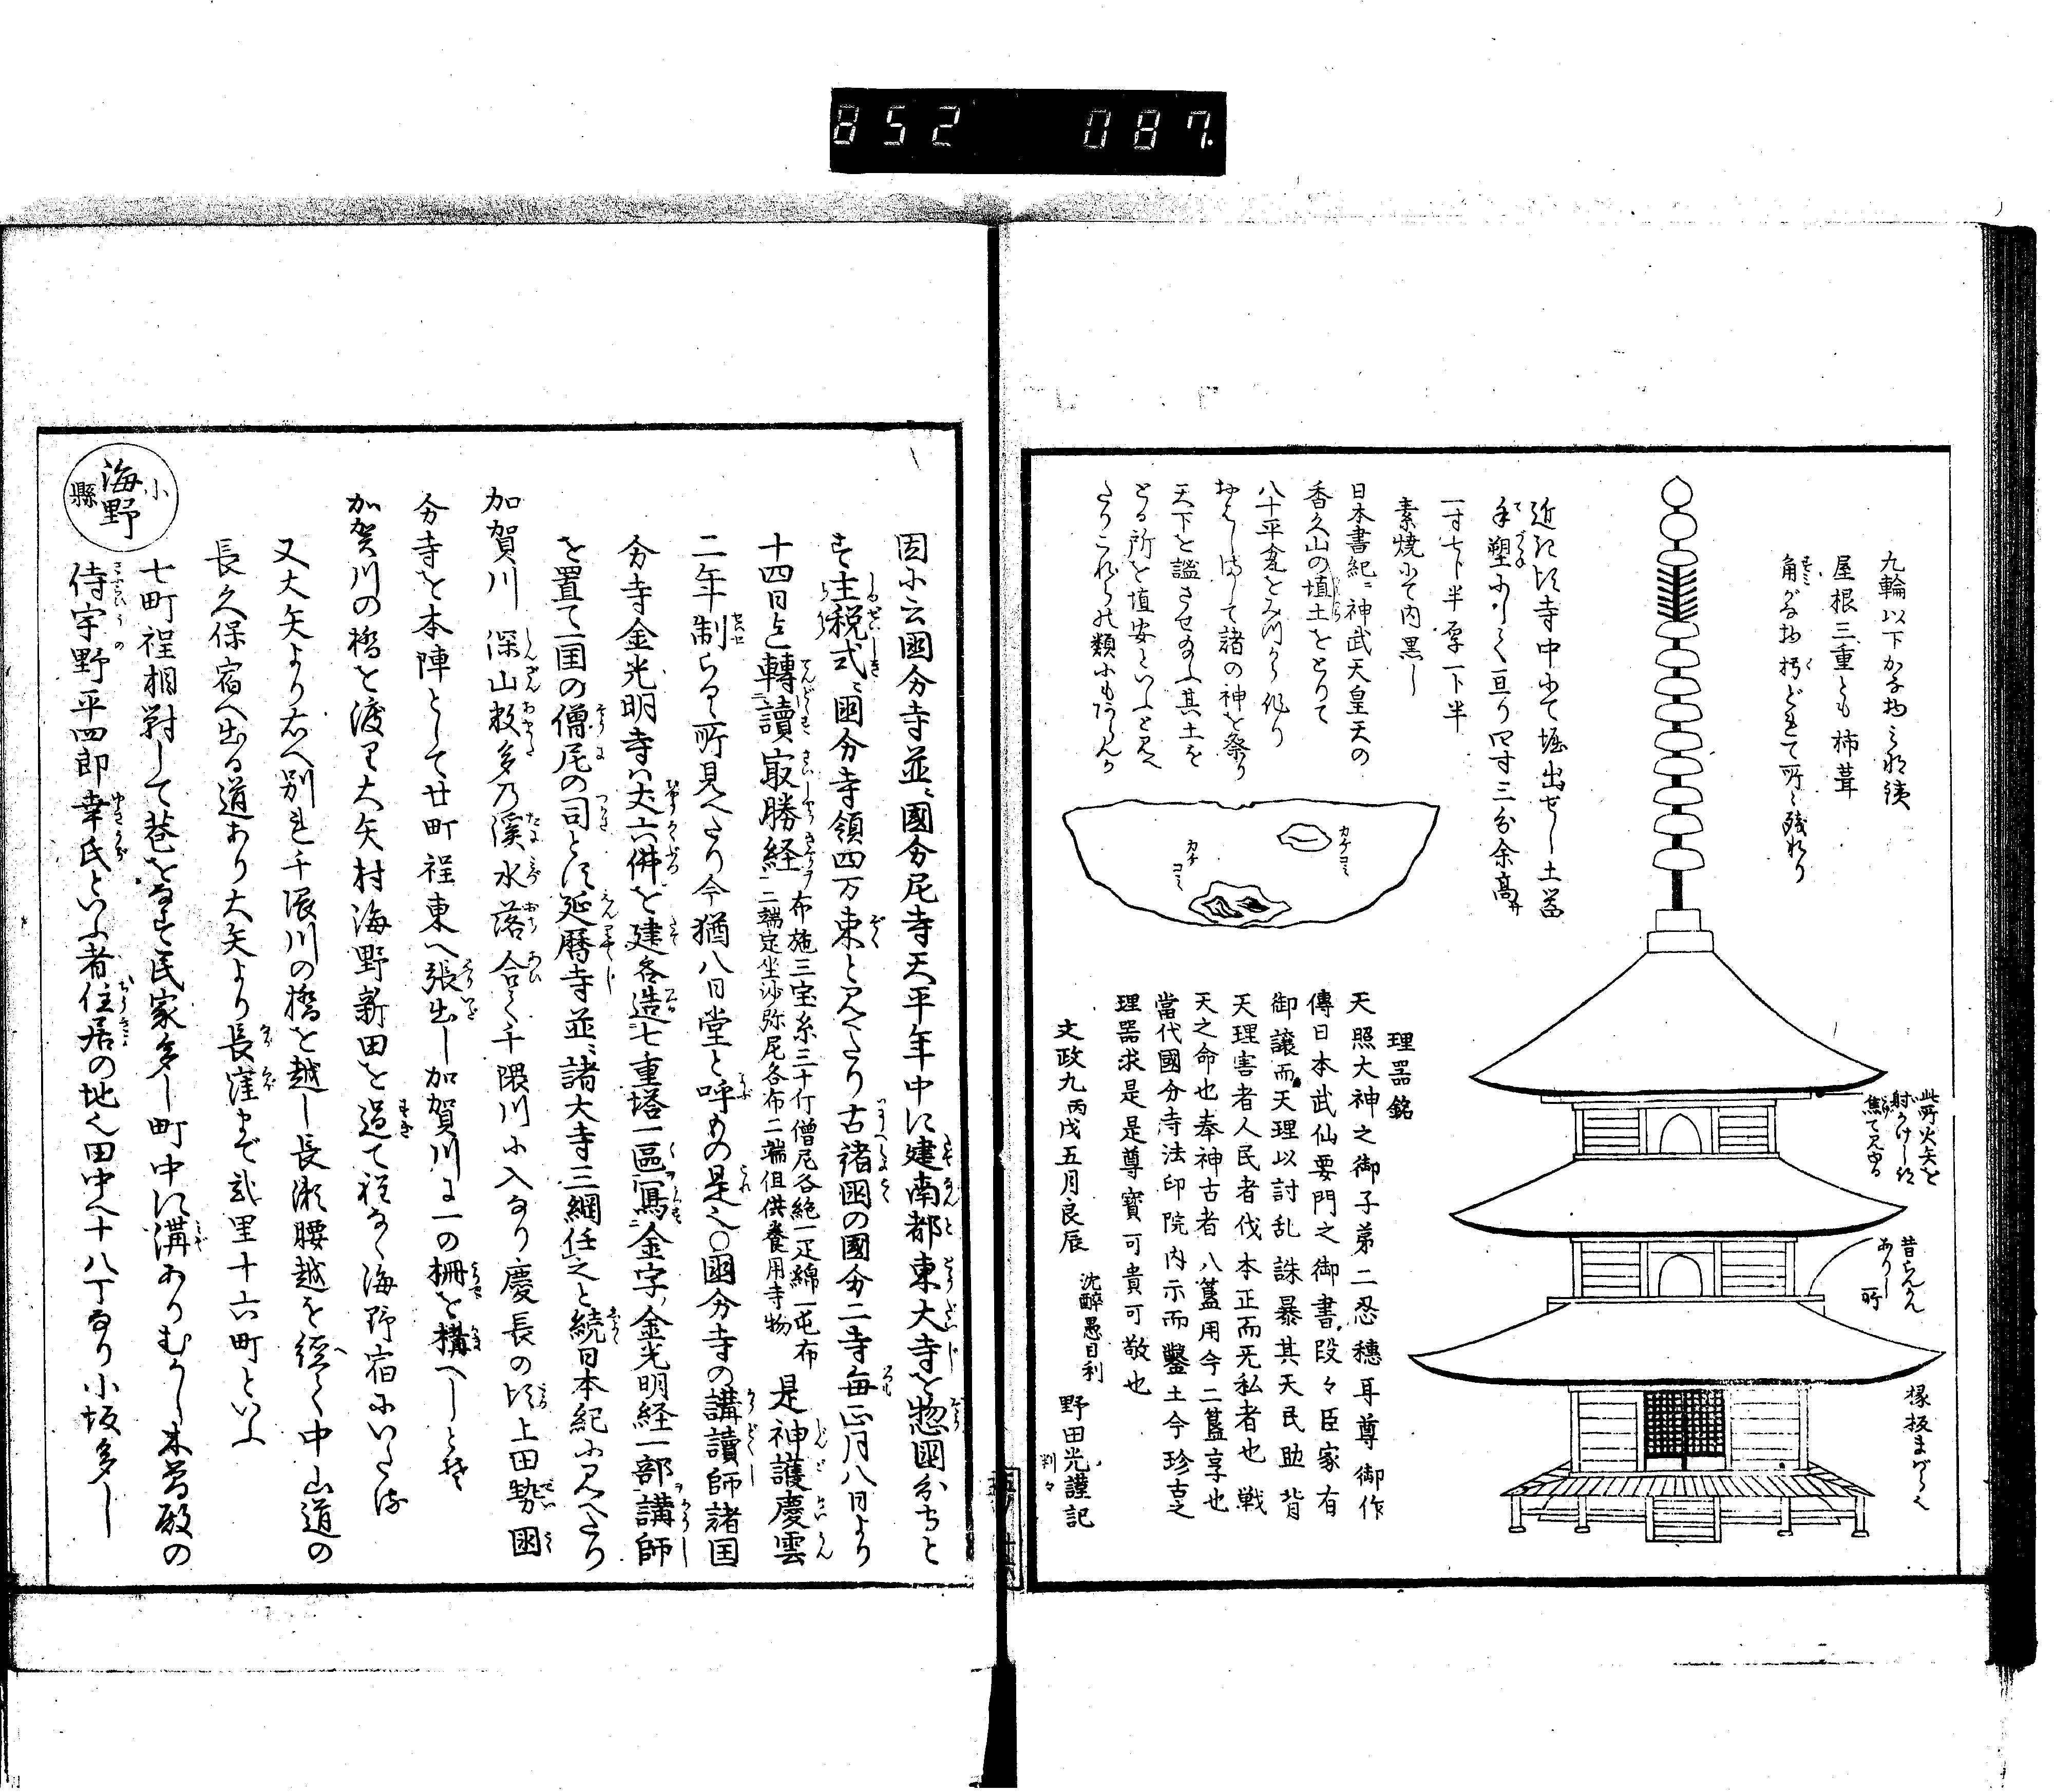 852 087
九輪以下かな物ミな鉄
屋根三重とも柿葺
角がな物朽どれて所々残れり
近き頃寺中にて堀出せし土器
手塑にして亘り四寸三分余高サ
一寸七卜半厚一卜半
素焼にて内黒し
日本書紀ニ神武天皇天の
香久山の埴土をとりて
八十平瓮をみづから作り
おはしまして諸の神を祭り
天下を謐させ給ふ其土を
とる所を埴安といふと見へ
たりこれらの類にもあらんか
カケコミ
カケコミ
此所火矢を
射かけし頃
焦て見ゆる
昔らんかん
ありし所
椽板まばら也
理器銘
天照大神之御子弟二忍穗耳尊御作
傳日本武仙要門之御書段々臣家有
御讓而天理以討乱誅暴其天民助背
天理害者人民者伐本正而旡私者也戦
天之命也奉神古者八簋用今二簋享也
當代國分寺法印院内示而鑿土今珍古之
理器求是是尊寳可貴可敬也
文政九丙戌五月良辰
沈醉愚目利 野田光謹記
因に云國分寺並ニ國分尼寺天平年中に建南都東大寺を惣國分寺と
す主税式ニ國分寺領四万束と見えたり古諸國の國分二寺毎正月八日より
十四日迄轉讀㝡勝経布施三宝糸三十斤僧尼各絁一疋綿一屯布
二端定坐沙弥尼各布二端但供養用寺物 是神護慶雲
二年制らる所見へたり今猶八日堂と呼もの是也〇國分寺の講讀師諸国
分寺金光明寺ハ丈六佛を建各造七重塔一區寫金字金光明経一部講師
を置て一国の僧尼の司とす延暦寺並ニ諸大寺三綱任之と続日本紀に見へたり
加賀川 深山數多乃溪水落合て千隈川に入なり慶長の頃上田勢國
分寺を本陣として廿町程東へ張出し加賀川に一の柵を構へしとぞ
加賀川の橋を渡り大矢村海野新田を過て程なく海野宿にいたる
又大矢より右へ別れ千隈川の橋を越し長瀬腰越を經て中山道の
長久保宿へ出る道あり大矢より長窪まで弐里十六町といふ
小縣 海野
七町程相對して巷をなす民家多し町中に溝ありむかし木曽殿の
侍宇野平四郎幸氏といふ者住居の地也田中へ十八丁なり小坂多し